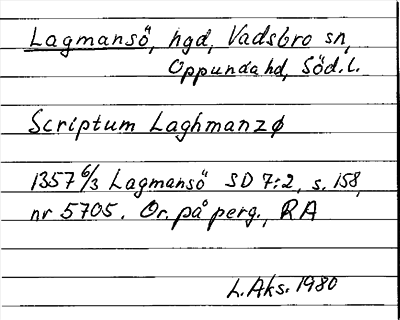 Lagmansö, hgd, Vadsbro sn,
Oppunda hd, Söd. l.
Scriptum Laghmanzø
1357 6/3 Lagmansö SD 7:2, s. 158,
nr 5705. Or. på perg., RA
L. Aks. 1980